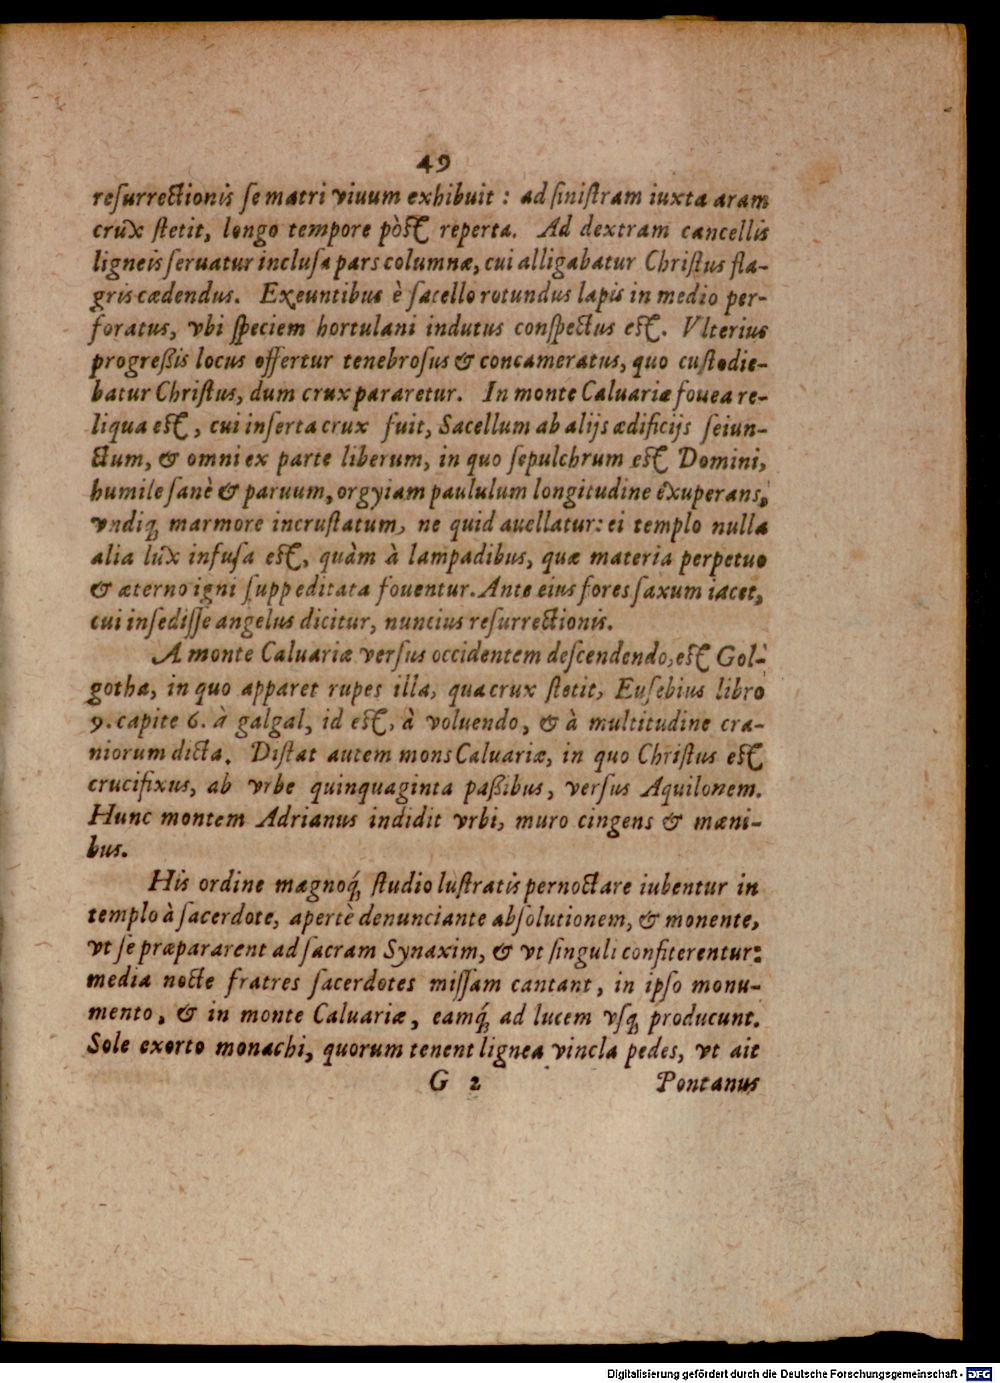 49
resurrectionis se matri viuum exhibuit : ad sinistram iuxta aram
crux stetit, longo tempore pòst reperta. Ad dextram cancellis
ligneis seruatur inclusa pars columnæ, cui alligabatur Christus fla-
gris cædendus. Exeuntibus è sacello rotundus lapis in medio per-
foratus, vbi speciem hortulani indutus conspectus est. Vlterius
progreßis locus offertur tenebrosus & concameratus, quo custodie-
batur Christus, dum crux pararetur. In monte Caluariæ fouea re-
liqua est, cui inserta crux fuit, Sacellum ab alijs ædificijs seiun-
ctum, & omni ex parte liberum, in quo sepulchrum est Domini,
humile sanè & paruum, orgyiam paululum longitudine exuperans,
vndiq; marmore incrustatum, ne quid auellatur: ei templo nulla
alia lux infusa est, quàm à lampadibus, quæ materia perpetuo
& æterno igni suppeditata fouentur. Ante eius fores saxum iacet,
cui insedisse angelus dicitur, nuncius resurrectionis.
A monte Caluariæ versus occidentem descendendo, est Gol-
gotha, in quo apparet rupes illa, qua crux stetit, Eusebius libro
9. capite 6. à galgal, id est, à voluendo, & à multitudine cra-
niorum dicta. Distat autem mons Caluariæ, in quo Christus est
crucifixus, ab vrbe quinquaginta paßibus, versus Aquilonem.
Hunc montem Adrianus indidit vrbi, muro cingens & mæni-
bus.
His ordine magnoq́; studio lustratis pernoctare iubentur in
templo à sacerdote, apertè denunciante absolutionem, & monente,
vt se præpararent ad sacram Synaxim, & vt singuli confiterentur:
media nocte fratres sacerdotes missam cantant, in ipso monu-
mento, & in monte Caluariæ, eamq́; ad lucem vsq; producunt.
Sole exorto monachi, quorum tenent lignea vincla pedes, vt ait
G 2 Pontanus
Digitalisierung gefördert durch die Deutsche Forschungsgemeinschaft - DFG